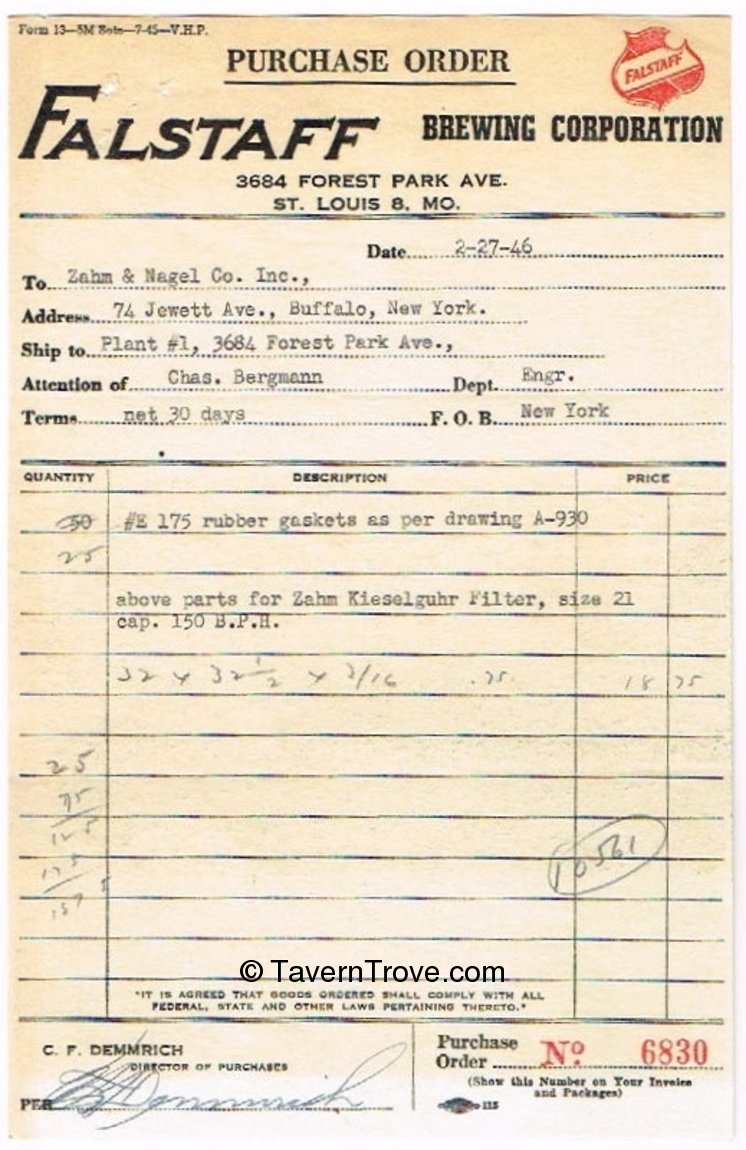 Form 13—5M Sets—7-45—V.H.P.
PURCHASE ORDER
FALSTAFF
FALSTAFF BREWING CORPORATION
3684 FOREST PARK AVE.
ST. LOUIS 8, MO.
Date 2-27-46
To Zahm & Nagel Co. Inc.,
Address 74 Jewett Ave., Buffalo, New York.
Ship to Plant #1, 3684 Forest Park Ave.,
Attention of Chas. Bergmann Dept. Engr.
Terms net 30 days F. O. B. New York
QUANTITY DESCRIPTION PRICE
50 #E 175 rubber gaskets as per drawing A-930
25
above parts for Zahm Kieselguhr Filter, size 21
cap. 150 B.P.H.
32 x 32 1/2 x 3/16 .75 18 75
25
75
125
175
10561
© TavernTrove.com
"IT IS AGREED THAT GOODS ORDERED SHALL COMPLY WITH ALL
FEDERAL, STATE AND OTHER LAWS PERTAINING THERETO."
C. F. DEMMRICH
DIRECTOR OF PURCHASES
PER C F Demmrich
Purchase
Order No 6830
(Show this Number on Your Invoice
and Packages)
115